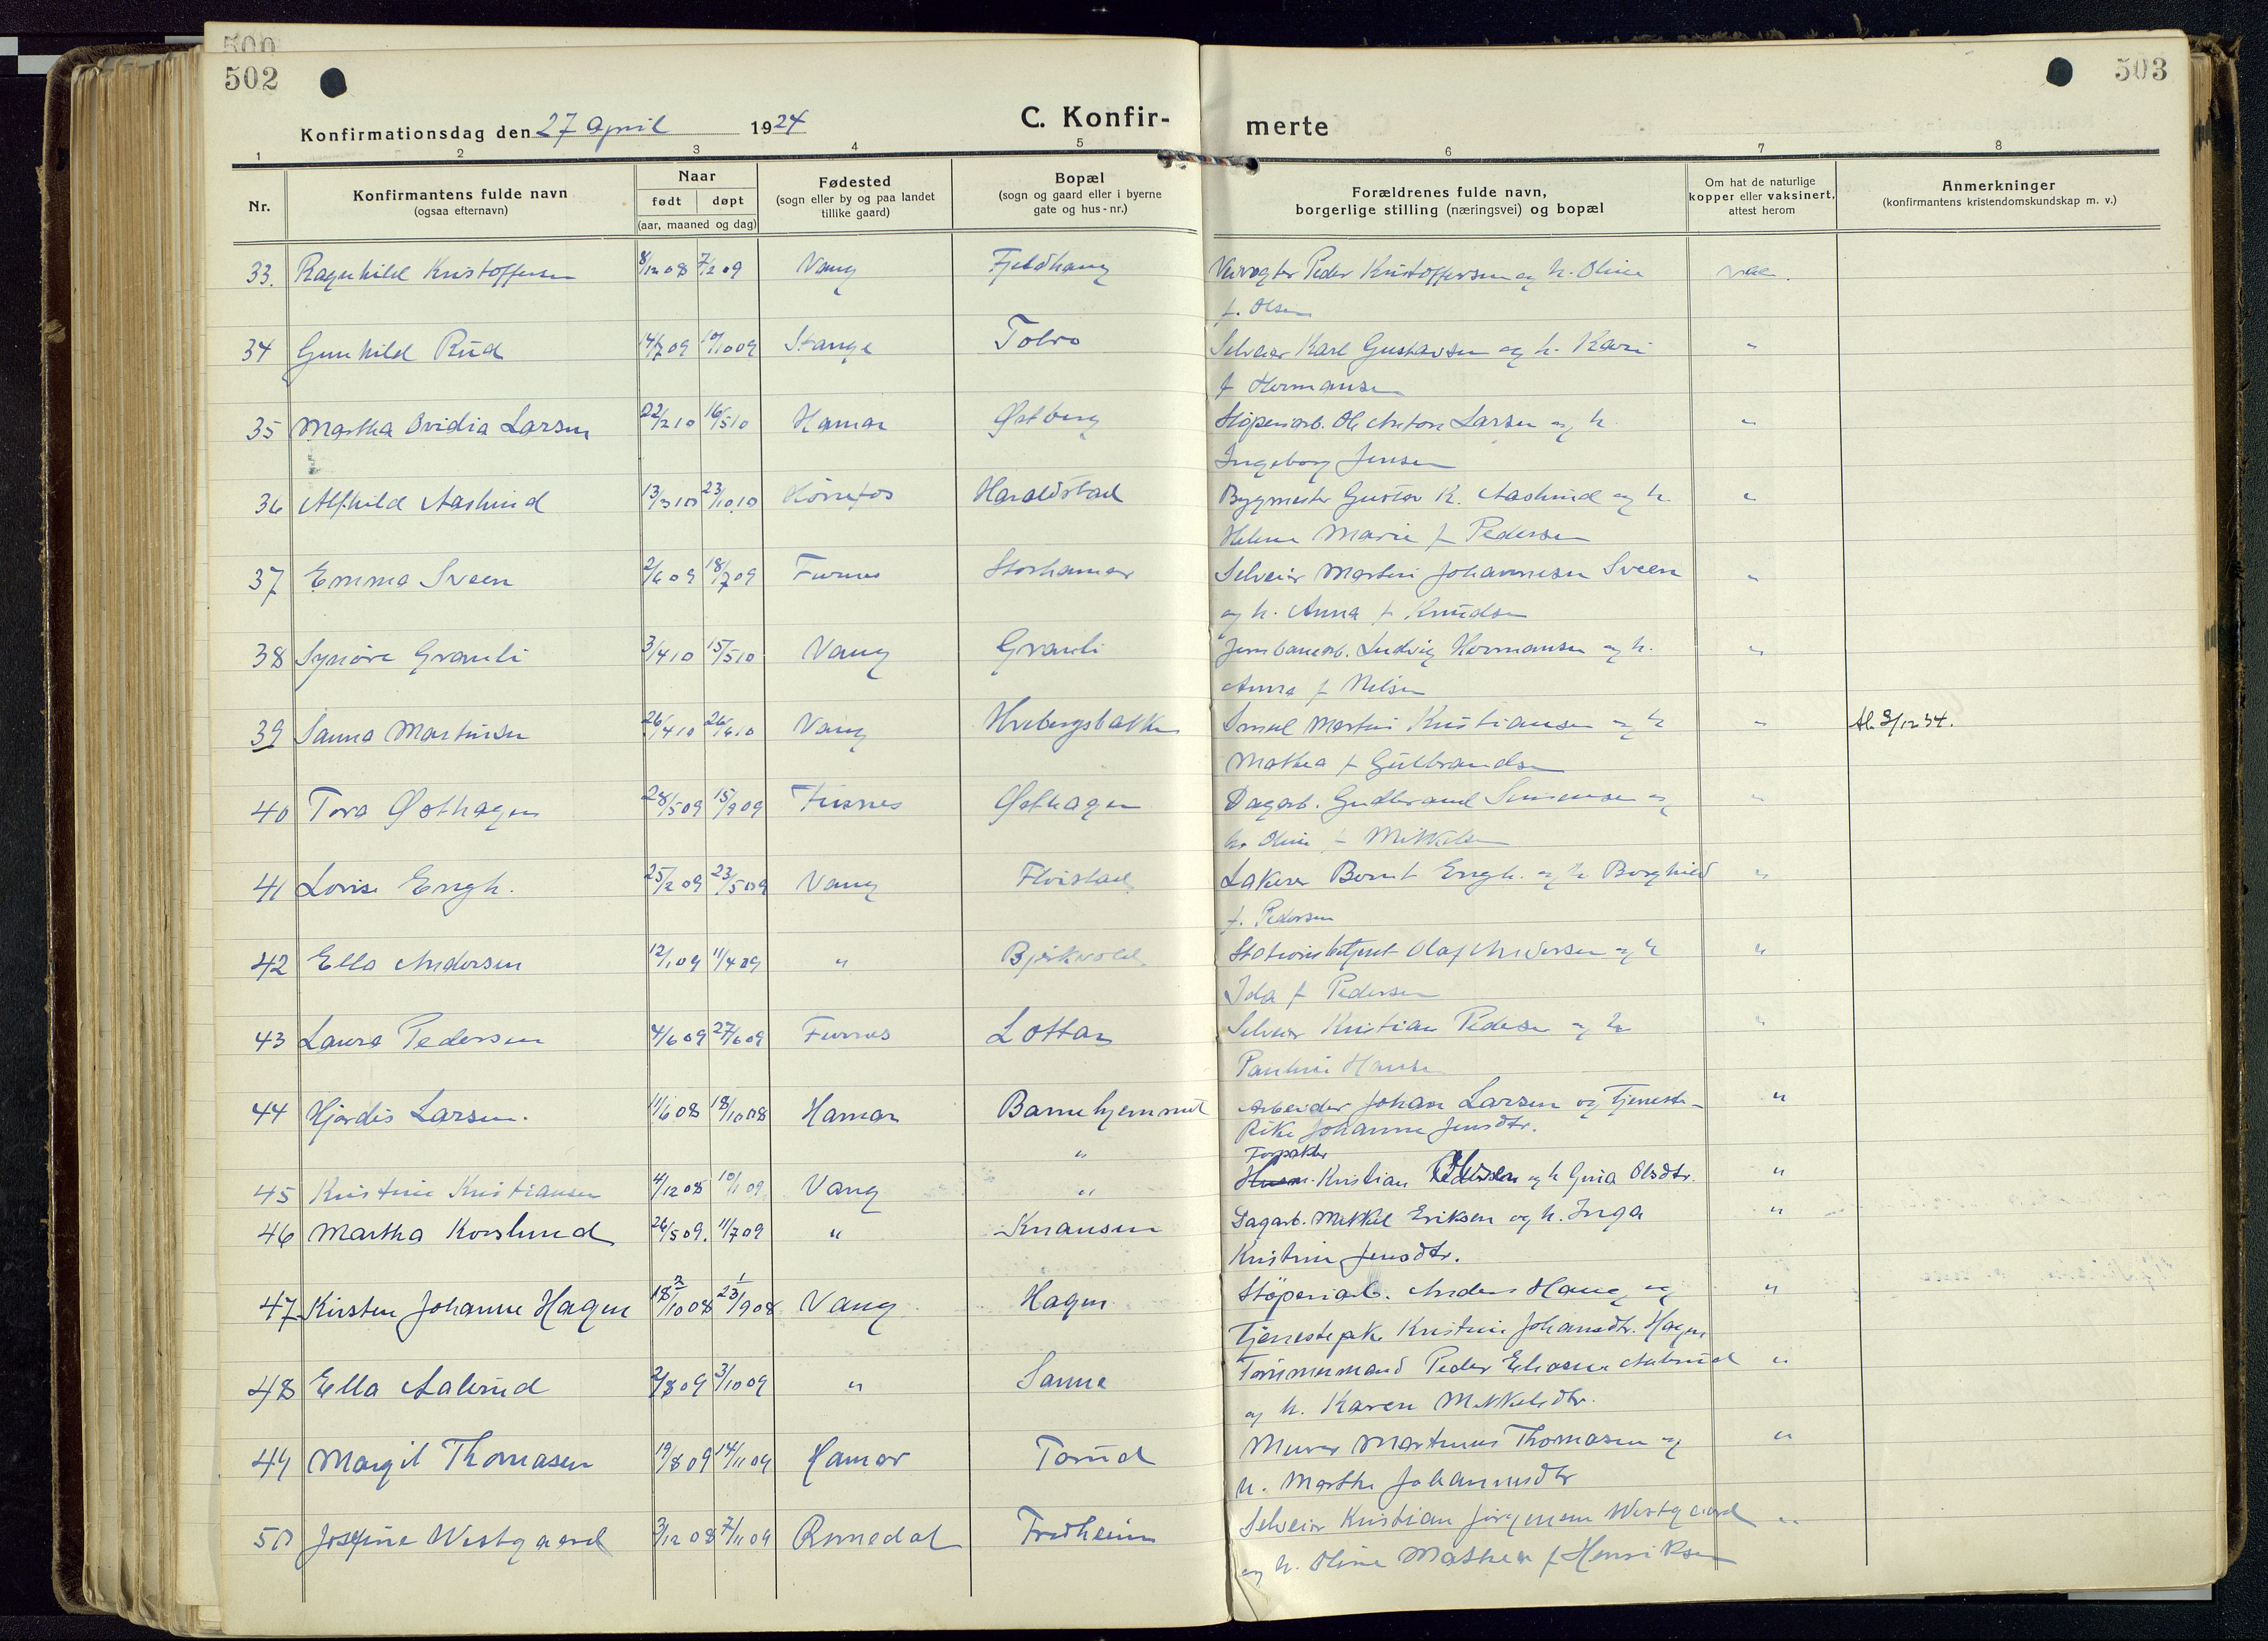 500
502
503
Konfirmationsdag den 27 April 1924
C. Konfir-
merte
1 2 3 4 5 6 7 8
Nr.
Konfirmantens fulde navn
(ogsaa efternavn)
Naar
født døpt
(aar, maaned og dag)
Fødested
(sogn eller by og paa landet
tillike gaard)
Bopæl
(sogn og gaard eller i byerne
gate og hus-nr.)
Forældrenes fulde navn,
borgerlige stilling (næringsvei) og bopæl
Om hat de naturlige
kopper eller vaksinert,
attest herom
Anmerkninger
(konfirmantens kristendomskundskap m. v.)
33. Ragnhild Kristoffersen 8/12 08 7/2 09 Vang Fjeldhaug Peder Kristoffersen og h. Oline vac.
f. Olsen
34 Gunhild Rud 14/7 09 10/10 09 Stange Tolvo Selveier Karl Gustavsen og h. Kari "
f Hermansen
35 Martha Ovidia Larsen 22/2 10 16/5 10 Hamar Østberg Støperiarb. Ole Anton Larsen og h. "
Ingeborg Jensen
36 Alfhild Aaslund 13/3 10 23/10 10 Hønefos Haraldstad Bygmester Gustav K. Aaslund og h. "
Helene Marie f Pedersen
37 Emma Sveen 2/6 09 18/7 09 Furnes Storhamar Selveier Martin Johannesen Sveen "
og h. Anna f Knudsen
38 Synøve Granli 3/4 10 15/5 10 Vang Granli Jernbanearb. Ludvig Hermansen og h. "
Anna f Nilsen
39 Sanna Martinsen 26/4 10 26/6 10 Vang Hvebergsbakken Martin Kristiansen og h " At. 3/12 34.
Mathea f Gulbrandsen
40 Tora Østhagen 28/5 09 15/9 09 Furnes Østhagen Dagarb. Gudbrand Simensen og "
h. Oline f Mikkelsen
41 Lovise Engh. 25/2 09 23/5 09 Vang Flristad Lakerer Bernt Engh. og h Borghild "
f. Pedersen
42 Ella Andersen 12/1 09 11/4 09 " Bjørkvold Stationsbetjent Olaf Andersen og h "
Ida f Pedersen
43 Laura Pedersen 4/6 09 27/6 09 Furnes Lottan Selveier Kristian Pedersen og h "
Pauline Hansen
44 Hjørdis Larsen. 11/6 08 18/10 08 Hamar Barnehjemmet Arbeider Johan Larsen og tjeneste- "
pike Johanne Jensdtr.
"
Forpakter
45 Kristine Kristiansen 4/12 08 10/1 09 Vang " Husm. Kristian Pedersen og h Gina Olsdtr. "
46 Martha Korslund 26/5 09. 11/7 09 " Knausen Dagarb. Mikkel Eriksen og h. Inga "
Kristine Jensdtr.
47 Kirsten Johanne Hagen 18/10 08 2 23/9 08 1 Vang Hagen Støperiarb. Anders Haug og "
tjenestepike Kristine Johansdtr. Hagen
48 Ella Aalerud 2/8 09 3/10 09 " Sanne Tømmermand Peder Eliasen Aalerud "
og h. Karen Mikkelsdtr.
49 Margit Thomasen 19/8 09 14/11 09 Hamar Torud Murer Martinus Thomasen og "
h. Marthe Johannesdtr
50 Josefine Westgaard 3/12 08 7/11 09 Romedal Fredheim Selveier Kristian Jørgensen Westgaard "
og h. Oline Mathea f Henriksen